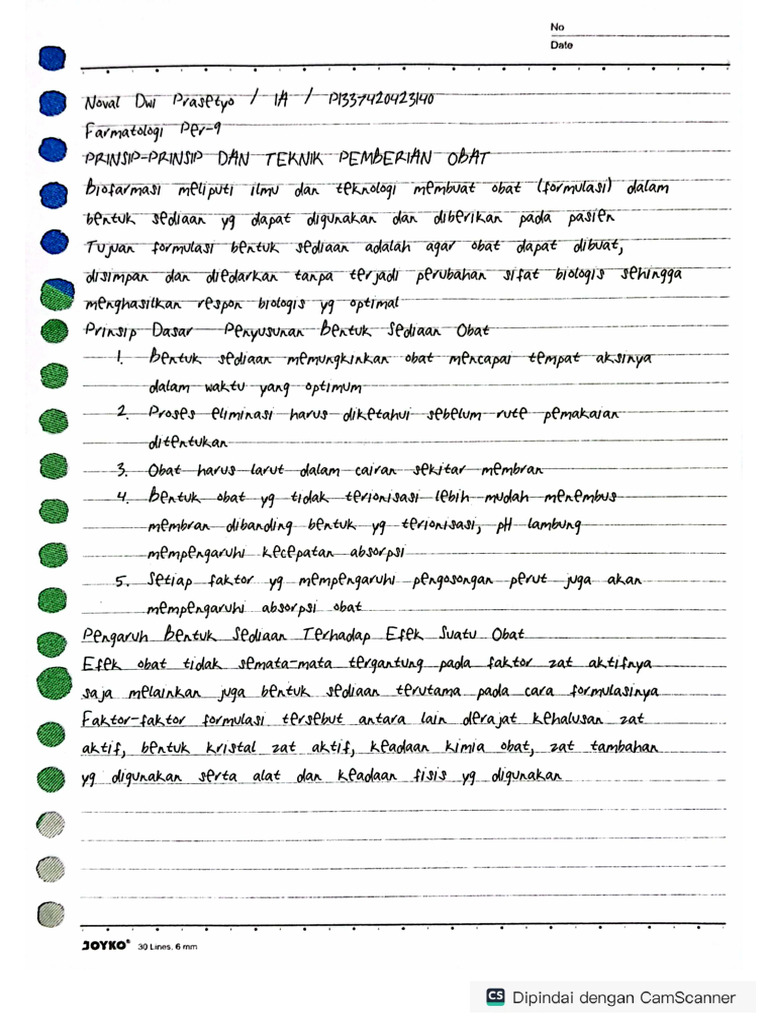 No
Date
Noval Dwi Prasetyo / 1A / P1337420423140
Farmatologi Per-9
PRINSIP-PRINSIP DAN TEKNIK PEMBERIAN OBAT
Biofarmasi meliputi ilmu dan teknologi membuat obat (formulasi) dalam
bentuk sediaan yg dapat digunakan dan diberikan pada pasien
Tujuan formulasi bentuk sediaan adalah agar obat dapat dibuat,
disimpan dan diedarkan tanpa terjadi perubahan sifat biologis sehingga
menghasilkan respon biologis yg optimal
Prinsip Dasar Penyusunan Bentuk Sediaan Obat
1. Bentuk sediaan memungkinkan obat mencapai tempat aksinya
dalam waktu yang optimum
2. Proses eliminasi harus diketahui sebelum rute pemakaian
ditentukan
3. Obat harus larut dalam cairan sekitar membran
4. Bentuk obat yg tidak terionisasi lebih mudah menembus
membran dibanding bentuk yg terionisasi, pH lambung
mempengaruhi kecepatan absorpsi
5. Setiap faktor yg mempengaruhi pengosongan perut juga akan
mempengaruhi absorpsi obat
Pengaruh Bentuk Sediaan Terhadap Efek Suatu Obat
Efek obat tidak semata-mata tergantung pada faktor zat aktifnya
saja melainkan juga bentuk sediaan terutama pada cara formulasinya
Faktor-faktor formulasi tersebut antara lain derajat kehalusan zat
aktif, bentuk kristal zat aktif, keadaan kimia obat, zat tambahan
yg digunakan serta alat dan keadaan fisis yg digunakan
JOYKO® 30 Lines, 6 mm
CS Dipindai dengan CamScanner